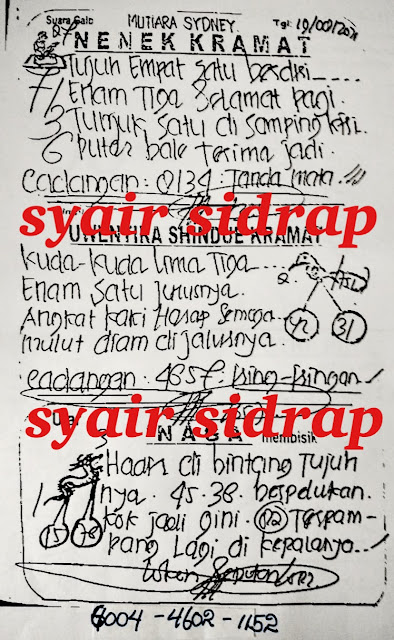 Suara Gaib MUTIARA SYDNEY. Tgl: 19/09/201
NENEK KRAMAT
Tujuh Empat satu berdiri
71 Enam Tiga Selamat pagi.
3 Tunjuk satu di samping kiri.
6 putar bale Terima jadi.
cadangan: 0134: Tanda mata
syair sidrap
UWENTIRA SHINDUE KRAMAT
Kuda-kuda lima Tiga
Enam satu jurusnya.
Angkat kaki Harap Semoga
mulut diam di jalusnya.
2
42 31
cadangan. 4657. King-kingan
syair sidrap
NAGA membisik
3
Haan di bintang Tujuh
nya. 45.38. berpelukan.
1
15 78
kok jadi gini. 02 Terpam-
pang Lagi di kepalanya..
6004-4602-1152